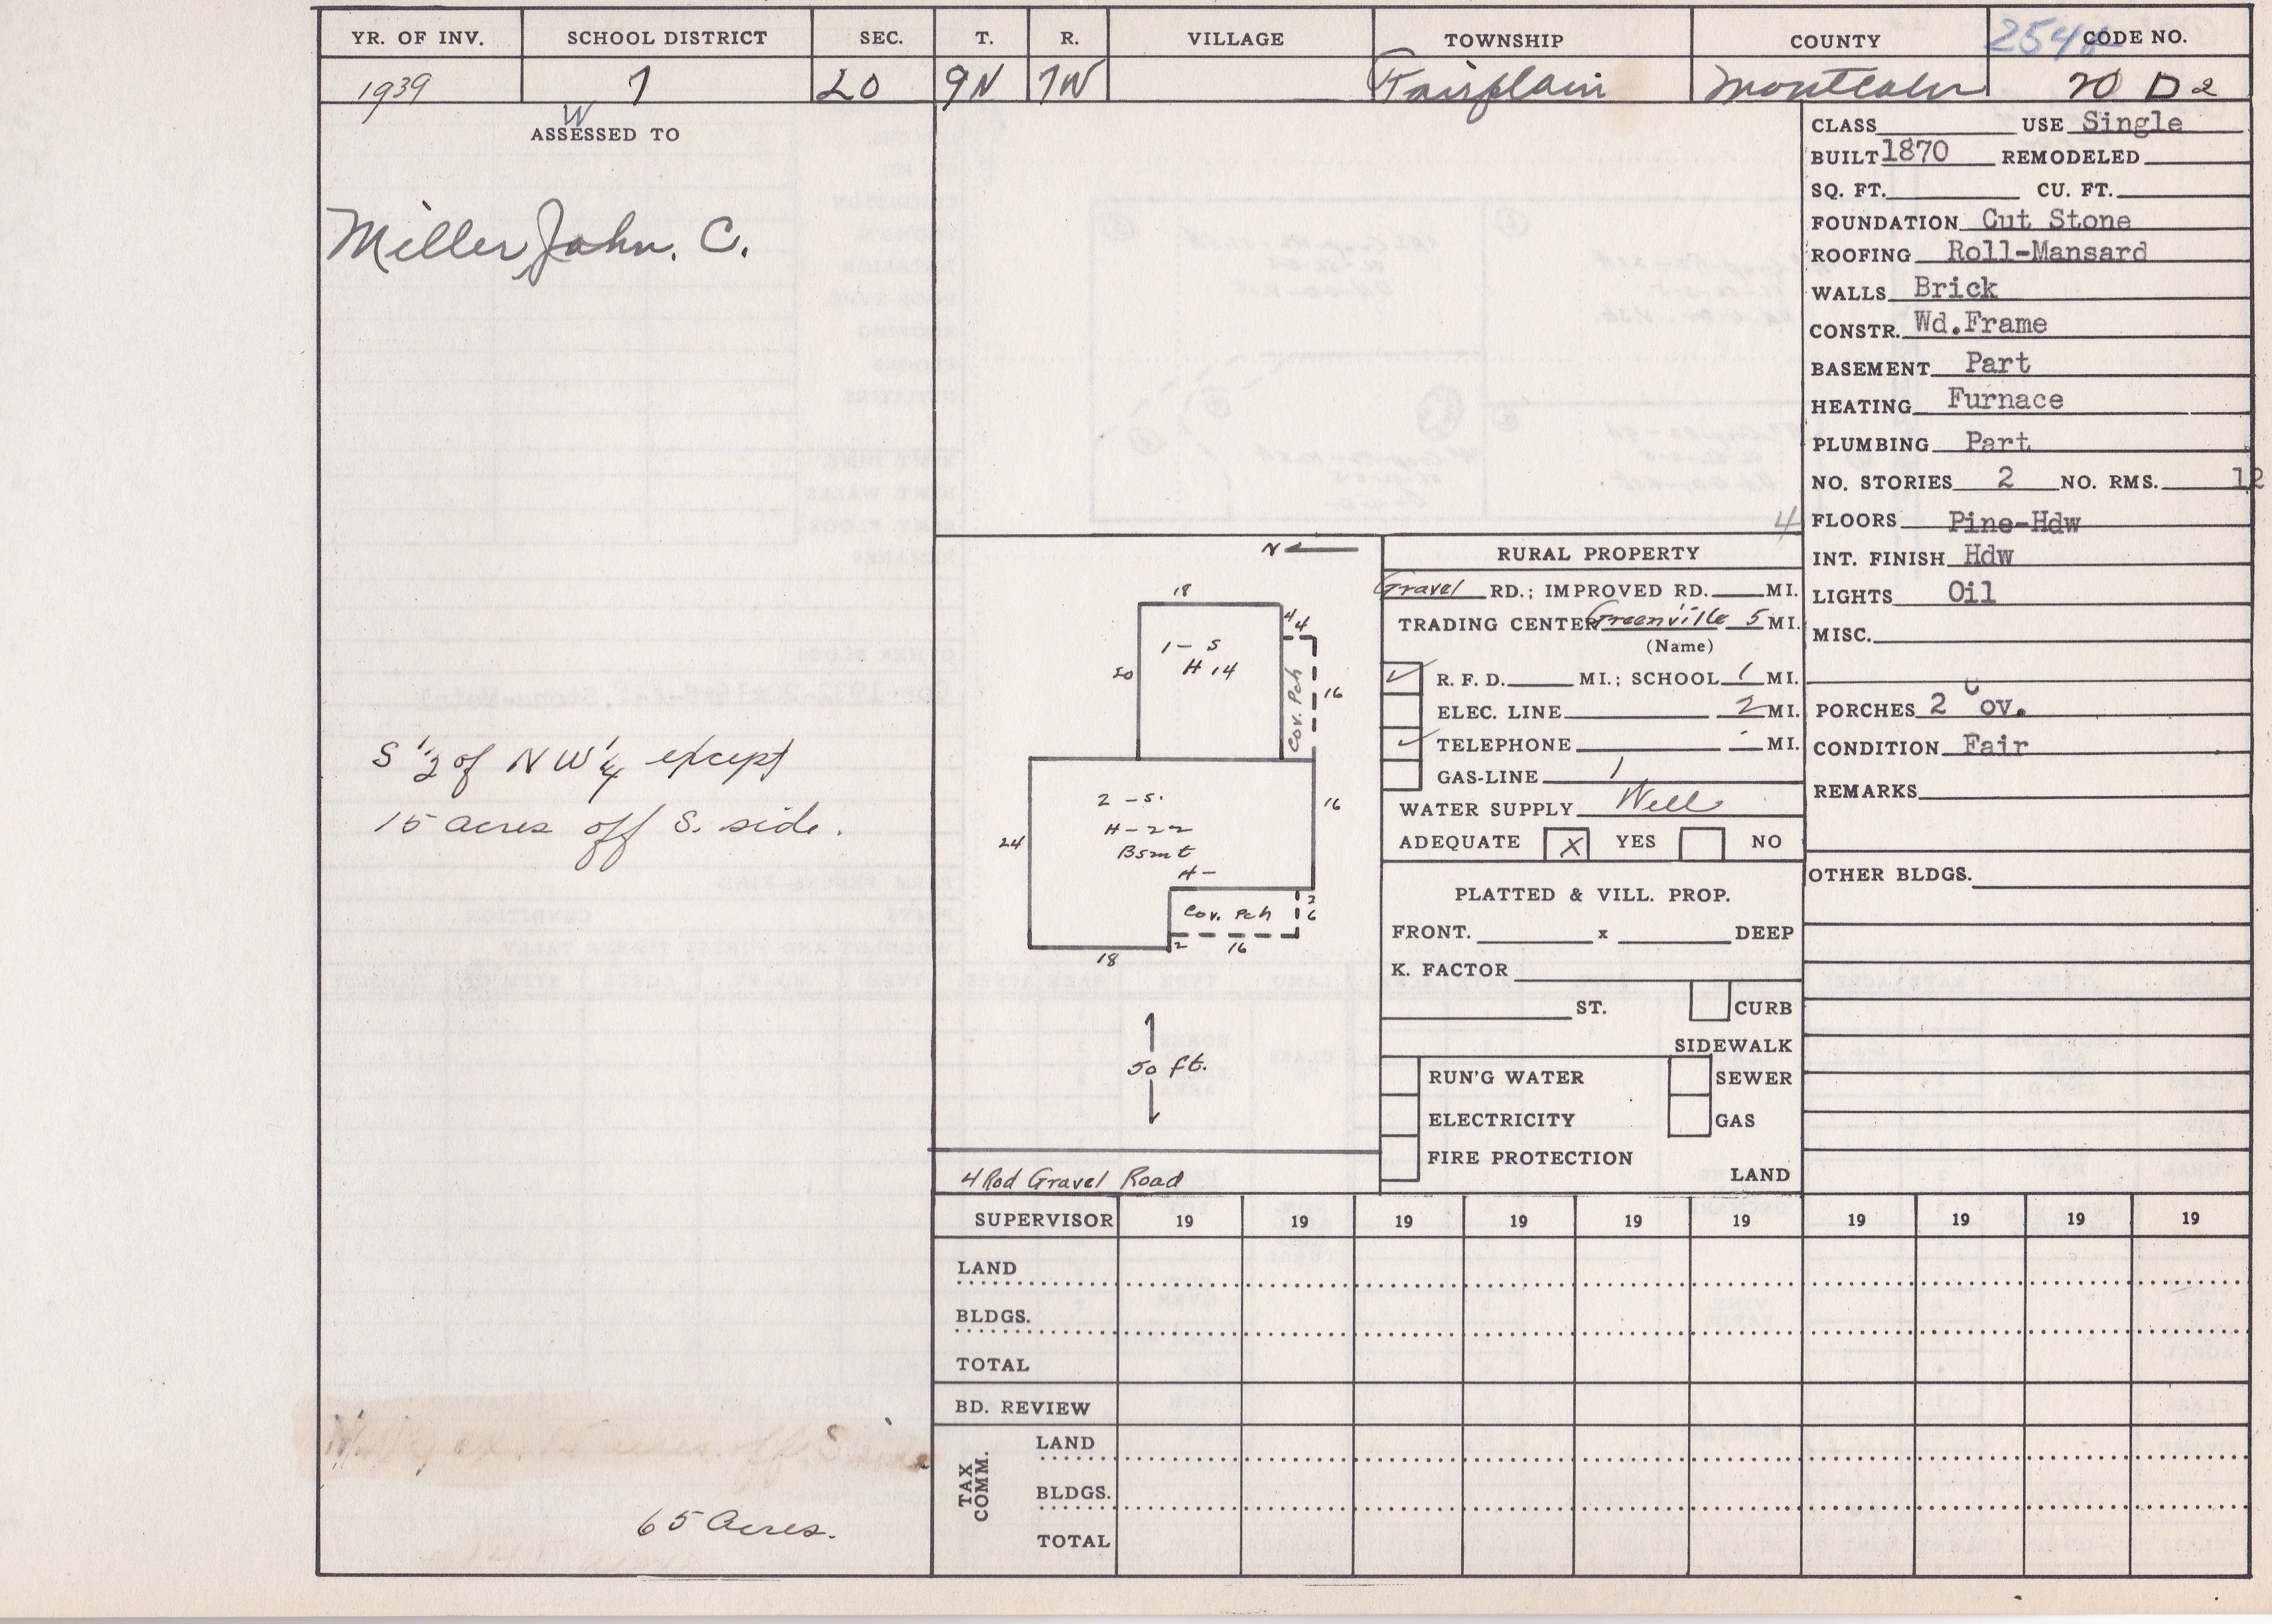 YR. OF INV. SCHOOL DISTRICT SEC. T. R. VILLAGE TOWNSHIP COUNTY CODE NO.
1939 7 20 9N 7W Fairplain Montcalm 20 D2
W
ASSESSED TO
Miller, John. C.
S 1/2 of NW 1/4 except
15 acres off S. side.
65 Acres.
N
18
1- S
H 14
20
4
4
16
Cov. Pch
2 -S.
H-22
Bsmt
H-
16
24
Cov. Pch
2
6
2
16
18
50 ft.
4 Rod Gravel Road
RURAL PROPERTY
Gravel RD.; IMPROVED RD. MI.
TRADING CENTER Greenville 5 MI.
(Name)
✓ R. F. D. MI.; SCHOOL 1 MI.
ELEC. LINE 2 MI.
✓ TELEPHONE MI.
GAS-LINE
WATER SUPPLY Well
ADEQUATE X YES NO
PLATTED & VILL. PROP.
FRONT. x DEEP
K. FACTOR
ST. CURB
SIDEWALK
RUN'G WATER SEWER
ELECTRICITY GAS
FIRE PROTECTION
LAND
CLASS USE Single
BUILT 1870 REMODELED
SQ. FT. CU. FT.
FOUNDATION Cut Stone
ROOFING Roll-Mansard
WALLS Brick
CONSTR. Wd.Frame
BASEMENT Part
HEATING Furnace
PLUMBING Part
NO. STORIES 2 NO. RMS. 12
4 FLOORS Pine-Hdw
INT. FINISH Hdw
LIGHTS Oil
MISC.
PORCHES 2 Cov.
CONDITION Fair
REMARKS
OTHER BLDGS.
SUPERVISOR 19 19 19 19 19 19 19 19 19 19
LAND
BLDGS.
TOTAL
BD. REVIEW
TAX COMM.
LAND
BLDGS.
TOTAL